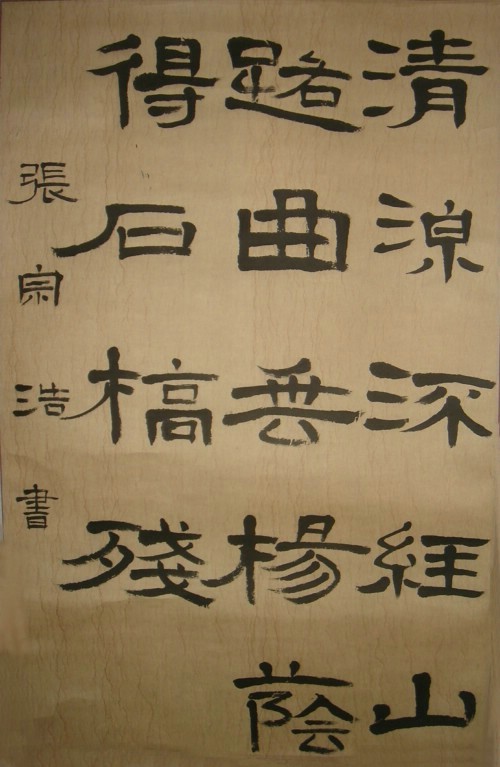 清涼深經山
路曲垂楊蔭
得石槁殘
張宗浩書